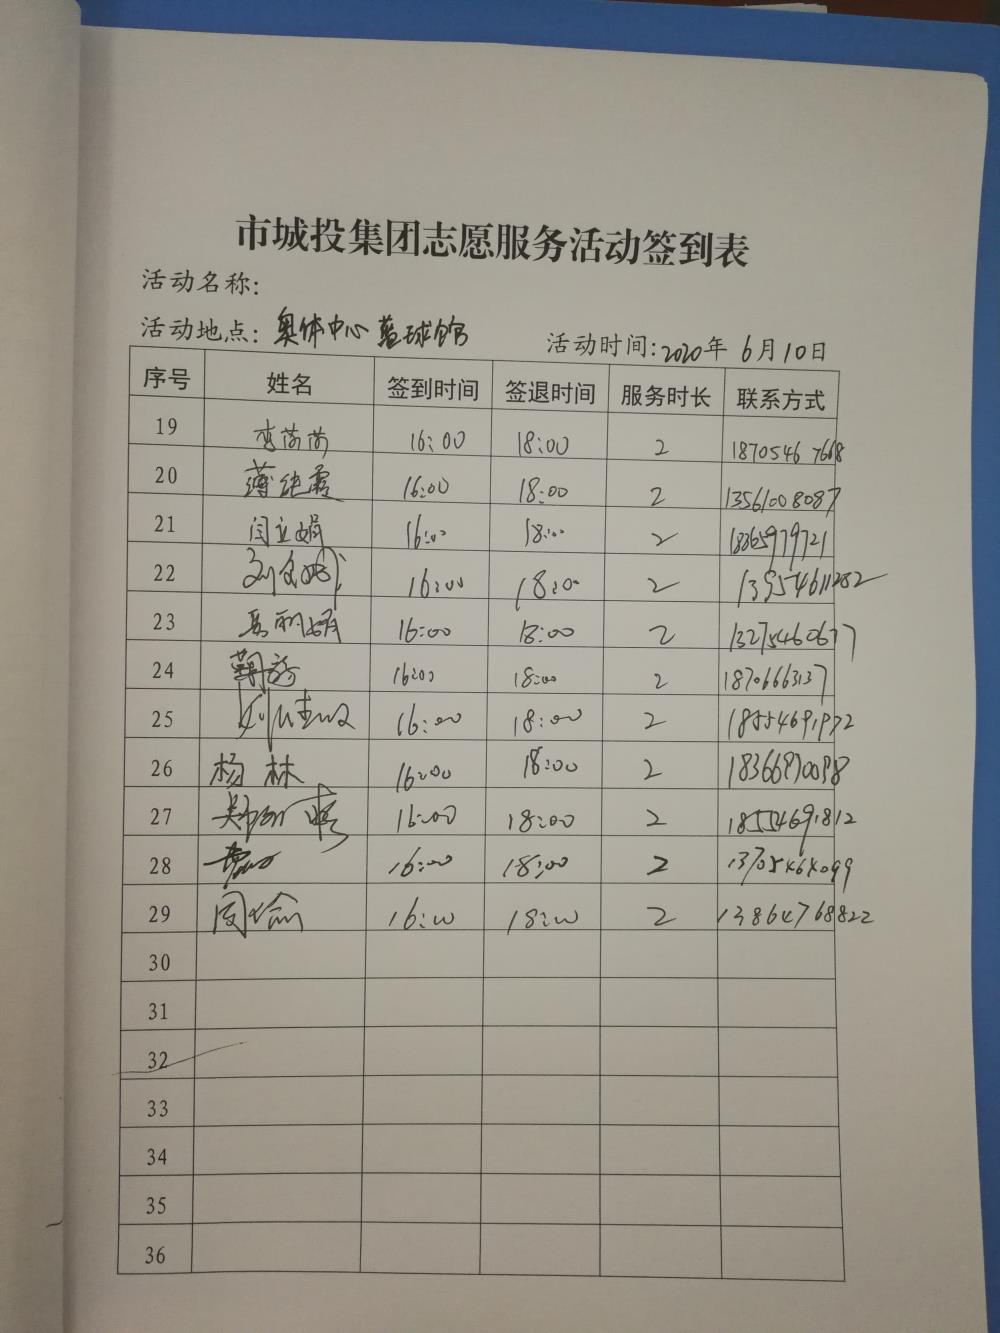 市城投集团志愿服务活动签到表
活动名称:
活动地点: 奥体中心篮球馆 活动时间:2020年 6月10日
序号 姓名 签到时间 签退时间 服务时长 联系方式
19 李茜茜 16:00 18:00 2
20 薄纯霞 16:00 18:00 2 13561008087
21 闫立娟 16:00 18:00 2
22 16:00 18:00 2 13954611282
23 16:00 18:00 2 13275460677
24 16:00 18:00 2
25 16:00 18:00 2 18554691972
26 杨林 16:00 18:00 2
27 16:00 18:00 2 18554691812
28 16:00 18:00 2 13705464099
29 16:00 18:00 2 13864768822
30
31
32
33
34
35
36